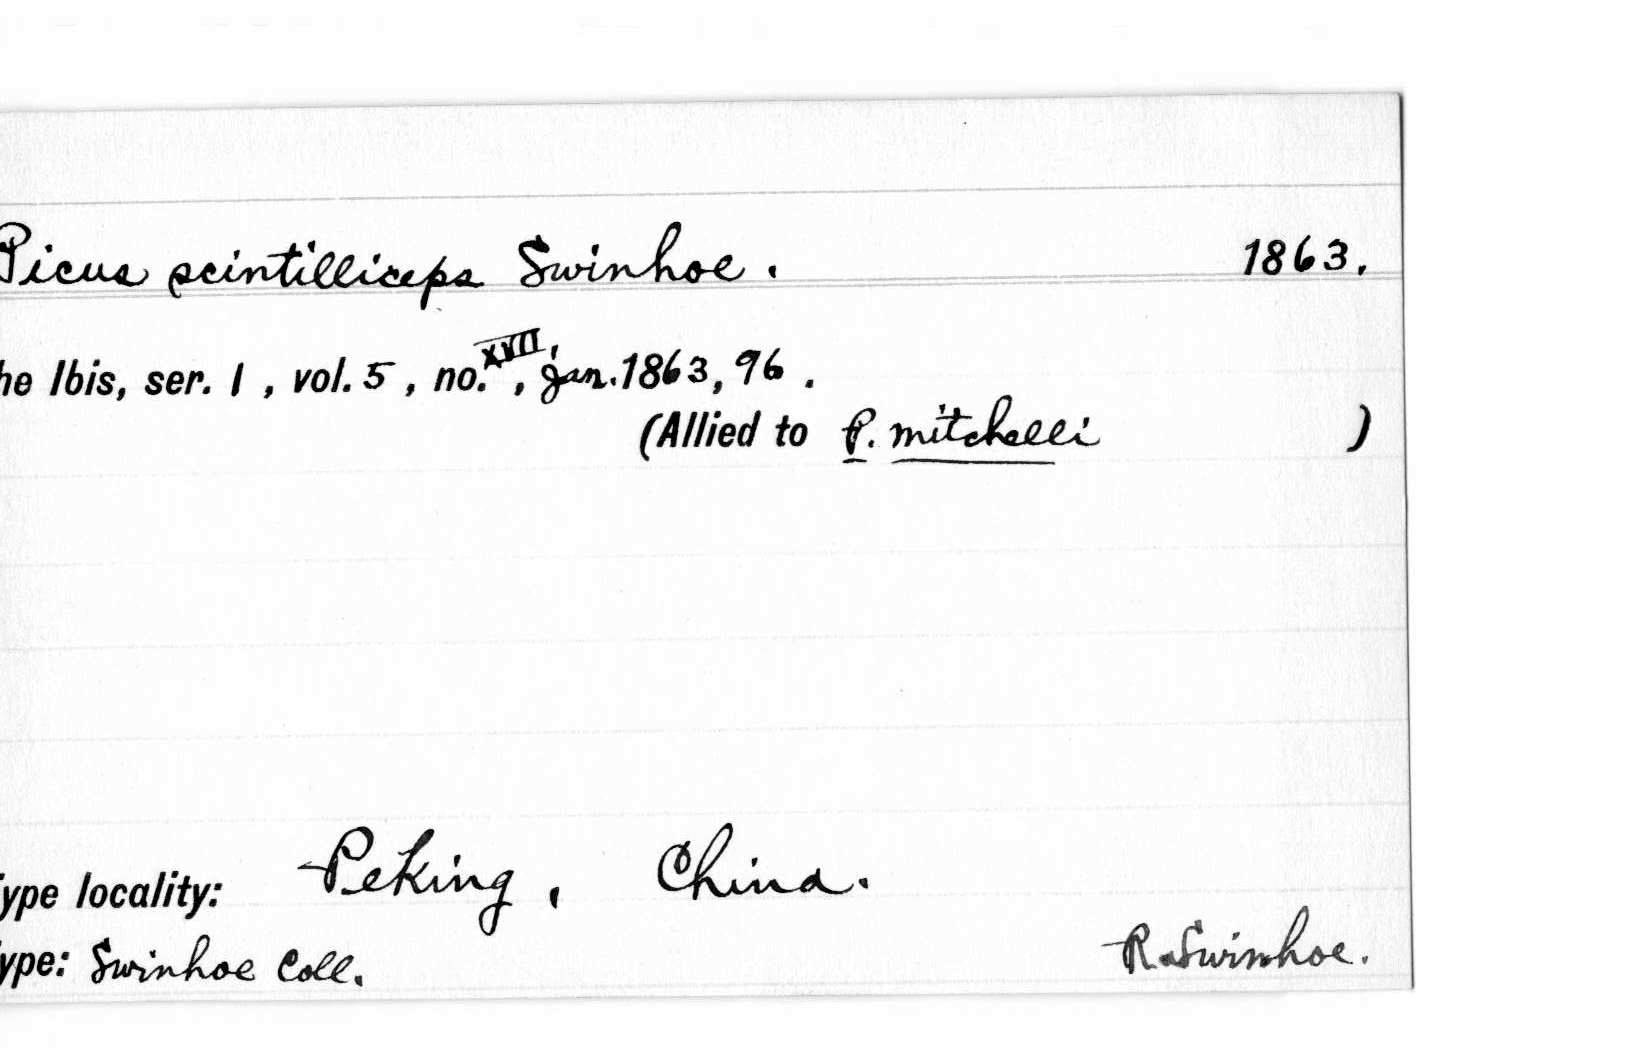 Picus scintilliceps Swinhoe. 1863.
he Ibis, ser. 1, vol. 5, no. XVII, Jan. 1863, 96.
(Allied to P. mitchelli )
ype locality: Peking, China.
ype: Swinhoe Coll. R. Swinhoe.